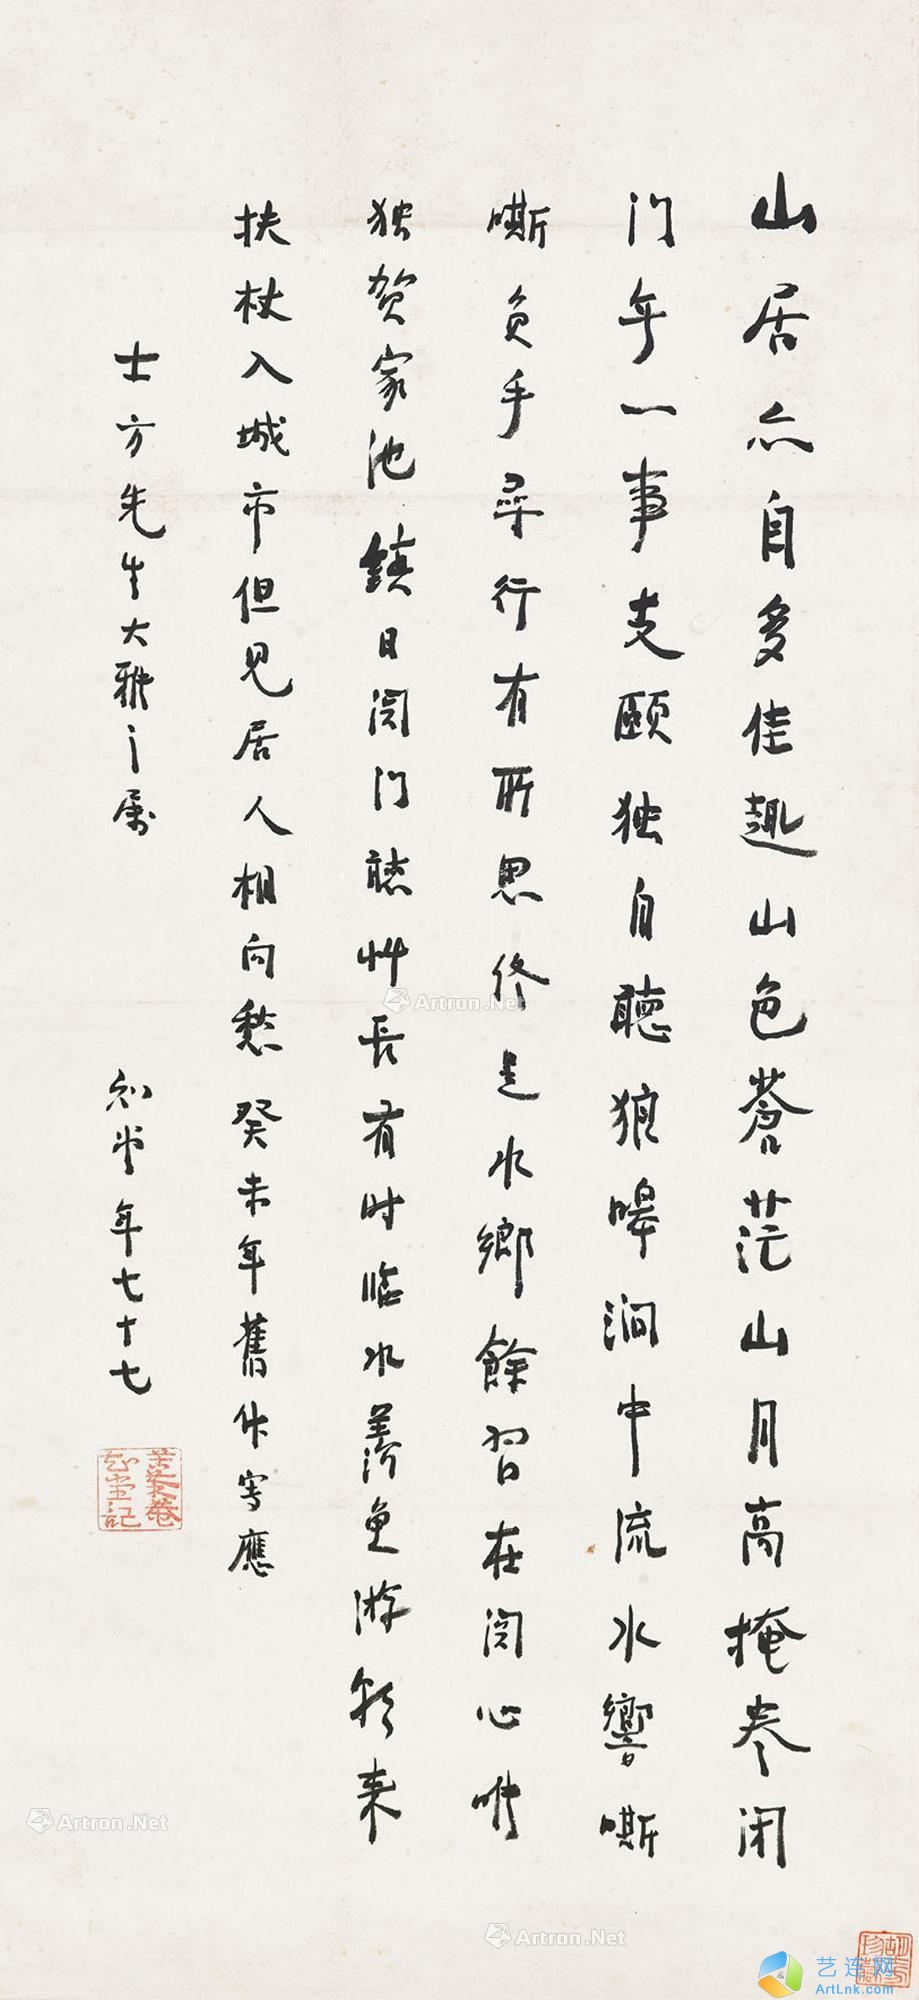 山居亦自多佳趣山色蒼茫山月高掩卷闭
门无一事支颐独自聽狼嗥涧中流水響嘶
嘶负手尋行有所思终是水鄉餘習在関心唯
独贺家池鎮日関门聽艸長有时临水羡魚游朅来
扶杖入城市但见居人相向愁癸未年舊作写應
士方先生大雅之属
知堂年七十七
苦茶菴
知堂記
Artron.Net
Artron.Net
Artron.Net
艺连网
ArtLnk.com